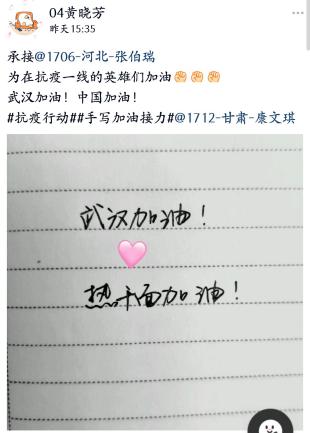 04黄晓芳
昨天15:35
承接@1706-河北-张伯瑞
为在抗疫一线的英雄们加油
武汉加油！中国加油！
#抗疫行动##手写加油接力#@1712-甘肃-康文琪
武汉加油！
热干面加油！